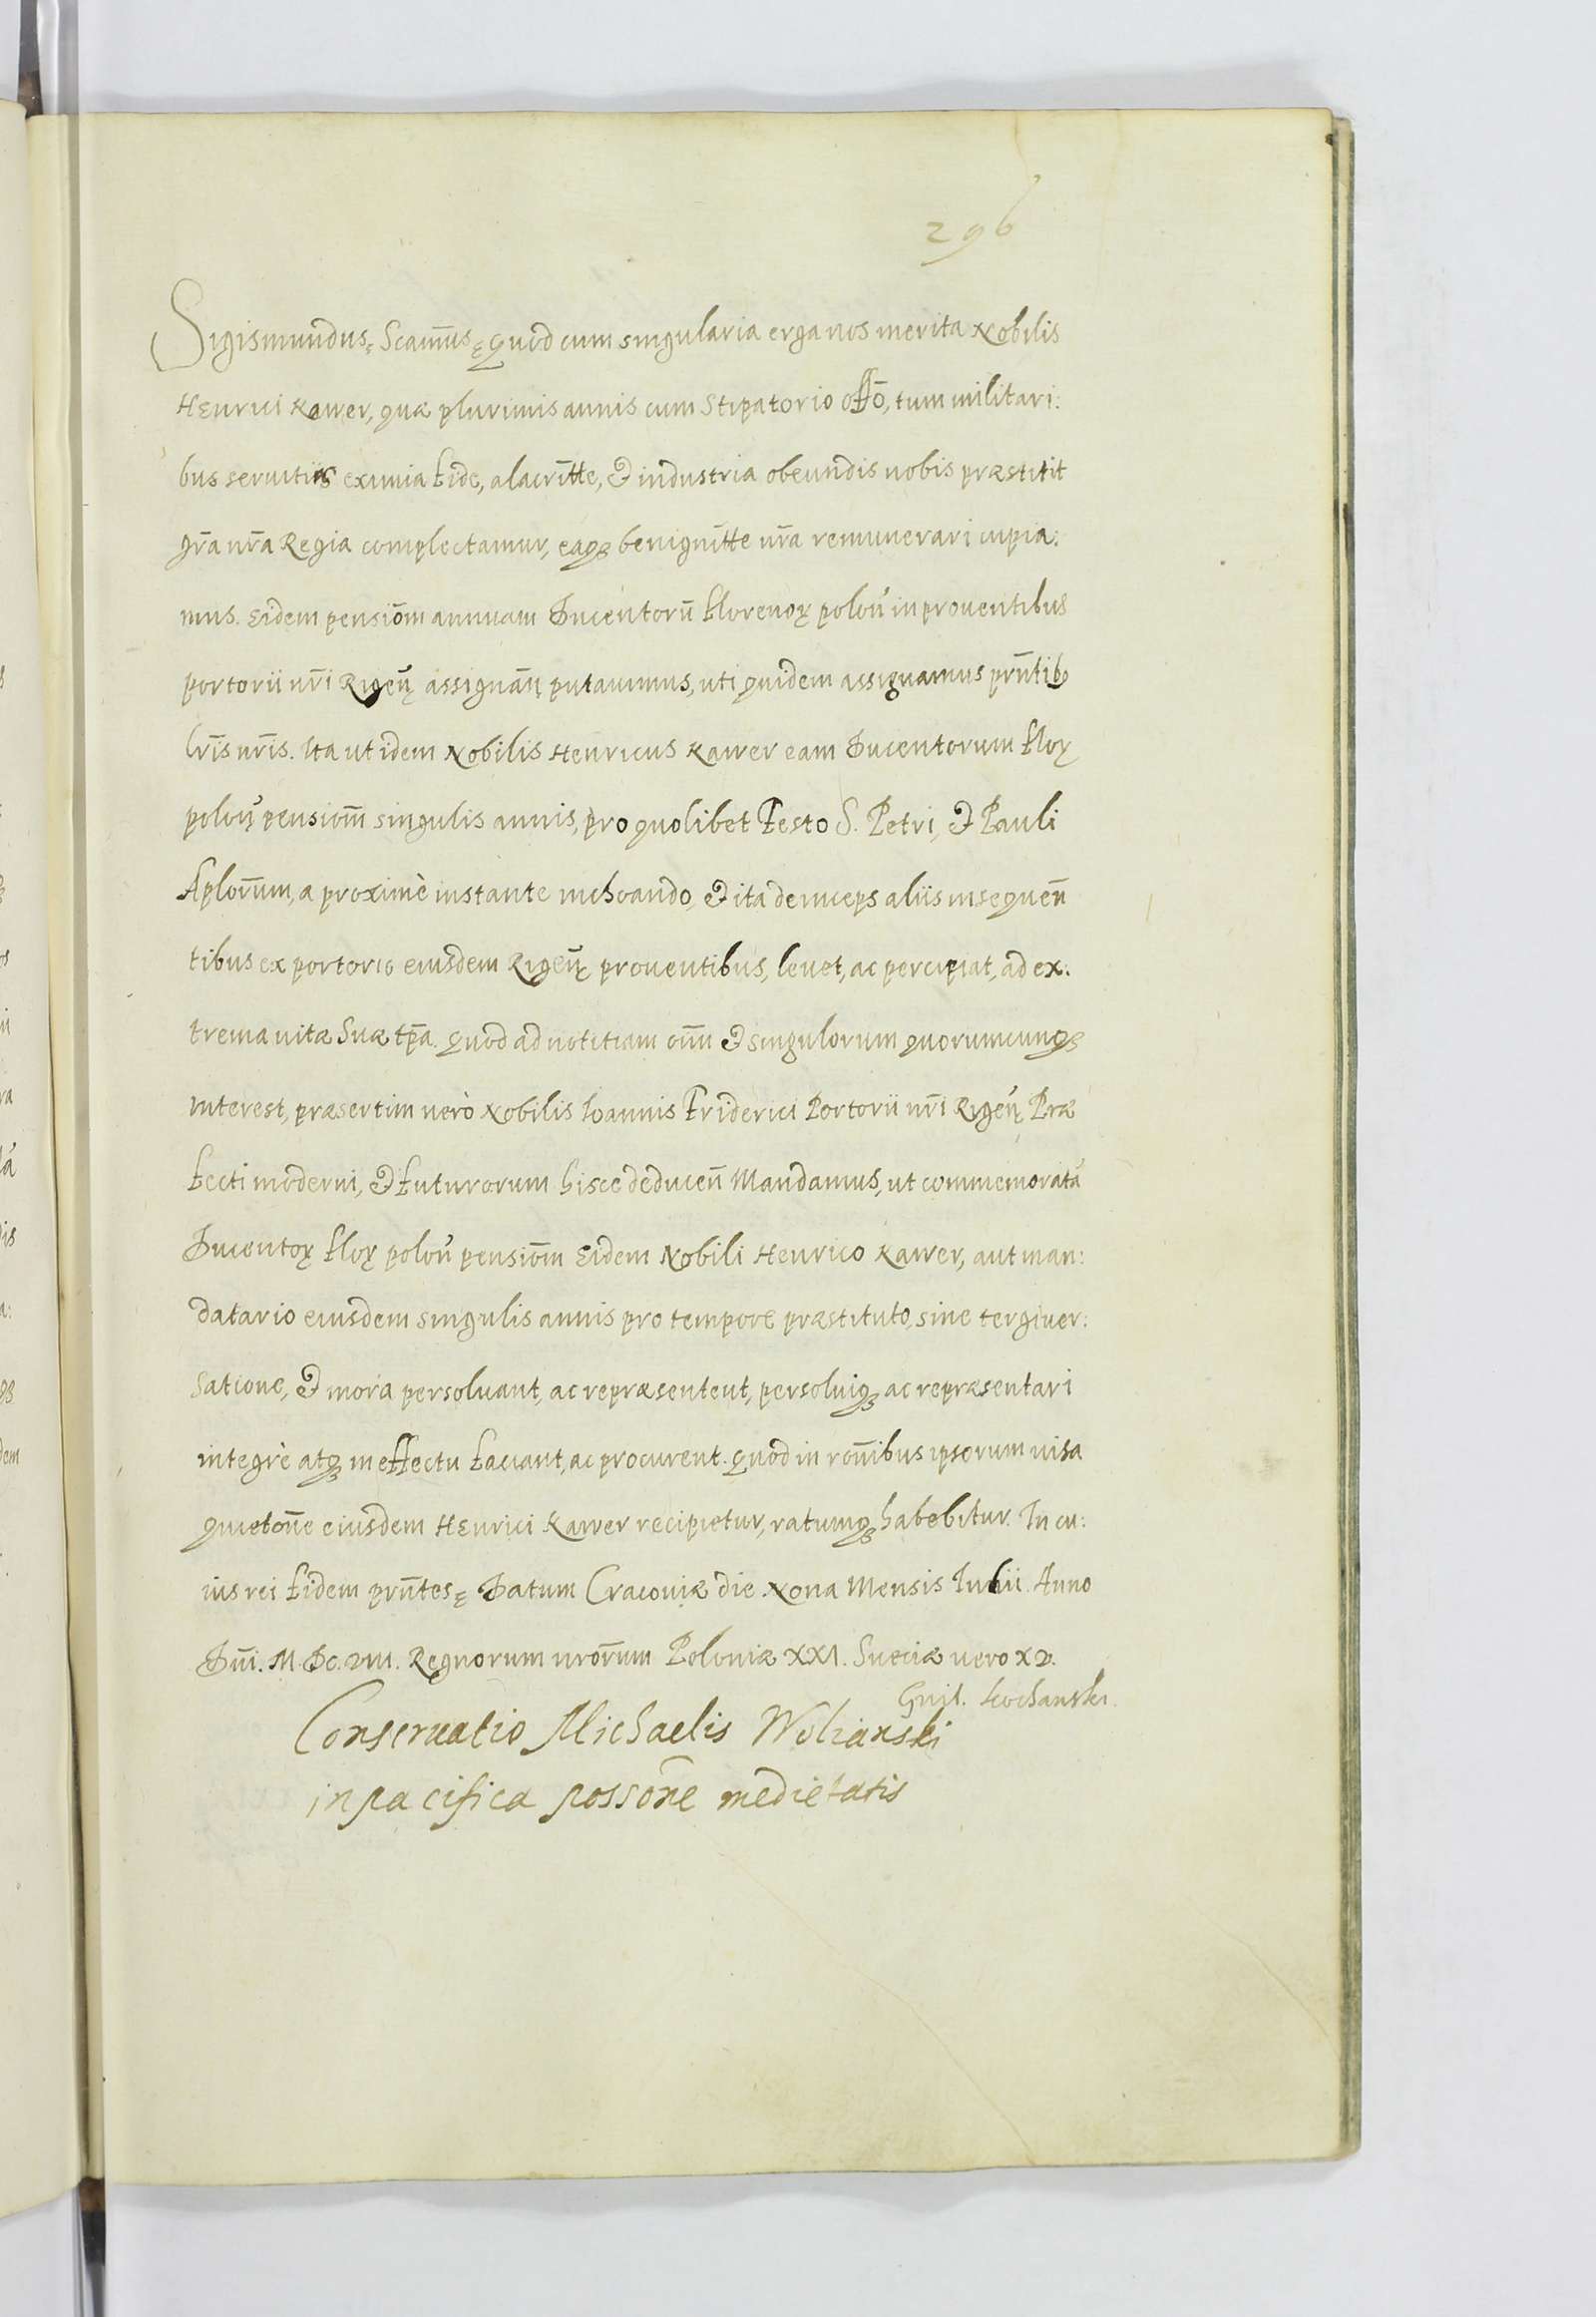 296
Sigismundus ę Scam̃us ę Quod cum singularia erga nos merita Nobilis
Henrici Kawer, quæ plurimis annis cum Stipatorio offõ, tum militari:
bus seruitiis eximia fide, alacrĩtte, & industria obeundis nobis præstitit
grã nrã Regia complectamur, eaqȝ benignĩtte nrã remunerari cupia:
mus. Eidem pensiõm annuam Ducentorũ florenoꝝ polon̉ in prouentibus
portorii nrĩ Rigeñ assignãn putauimus, uti quidem assignamus prñtibꝰ
lrĩs nrĩs. Ita ut idem Nobilis Henricus Kawer eam Ducentorum floꝝ
polon̉ pensiom̃ singulis annis, pro quolibet Festo S. Petri, & Pauli
Aplorũm, a proximè instante inchoando, & ita deinceps aliis insequeñ
tibus ex portorio eiusdem Rigeñ prouentibus, leuet, ac percipiat, ad ex:
trema uitæ suæ tp̃a. Quod ad notitiam om̃u & singulorum quorumcunqȝ
interest, præsertim uerò Nobilis Ioannis Friderici Portorii nrĩ Rigeñ Præ
fecti moderni, & futurorum hisce deduceñ Mandamus, ut commemoratã
Ducentoꝝ floꝝ polon̉ pensiõm Eidem Nobili Henrico Kawer, aut man:
datario eiusdem singulis annis pro tempore præstituto, sine tergiuer:
satione, & mora persoluant, ac repræsentent, persoluiqȝ ac repræsentari
integrè atqȝ in effectu faciant, ac procurent. Quod in roñibus ipsorum uisa
quietoñe eiusdem Henrici Kawer recipietur, ratumqȝ habebitur. In cu:
ius rei fidem prñtes ę Datum Cracouiæ die Nona Mensis Iulii. Anno
Dñi. M. DC. VIII. Regnorum nrorũm Poloniæ XXI. Sueciæ uero XV.
Guil. Kochanski.
Conseruatio Michaelis Wolianski
in pacifica possoñe medietatis